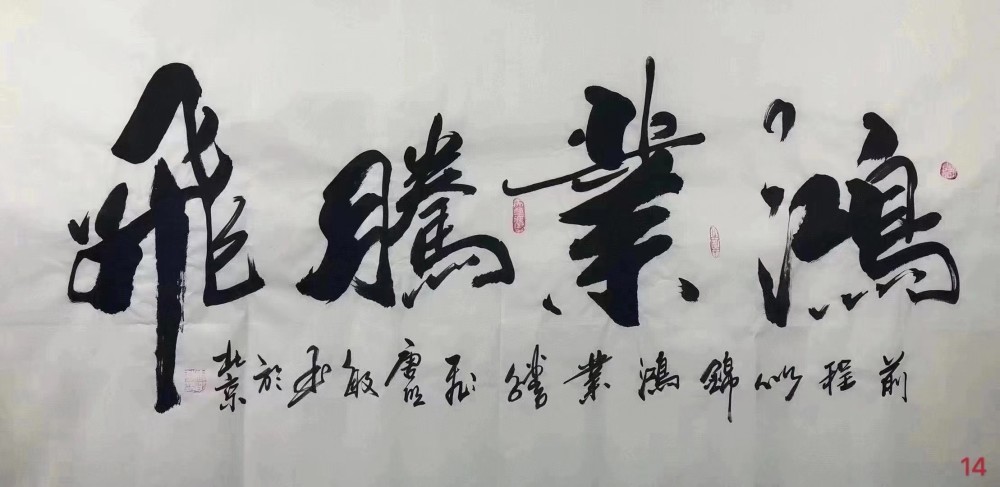 鴻業騰飛
前程以錦鴻業騰飛唐敏书於北京
14